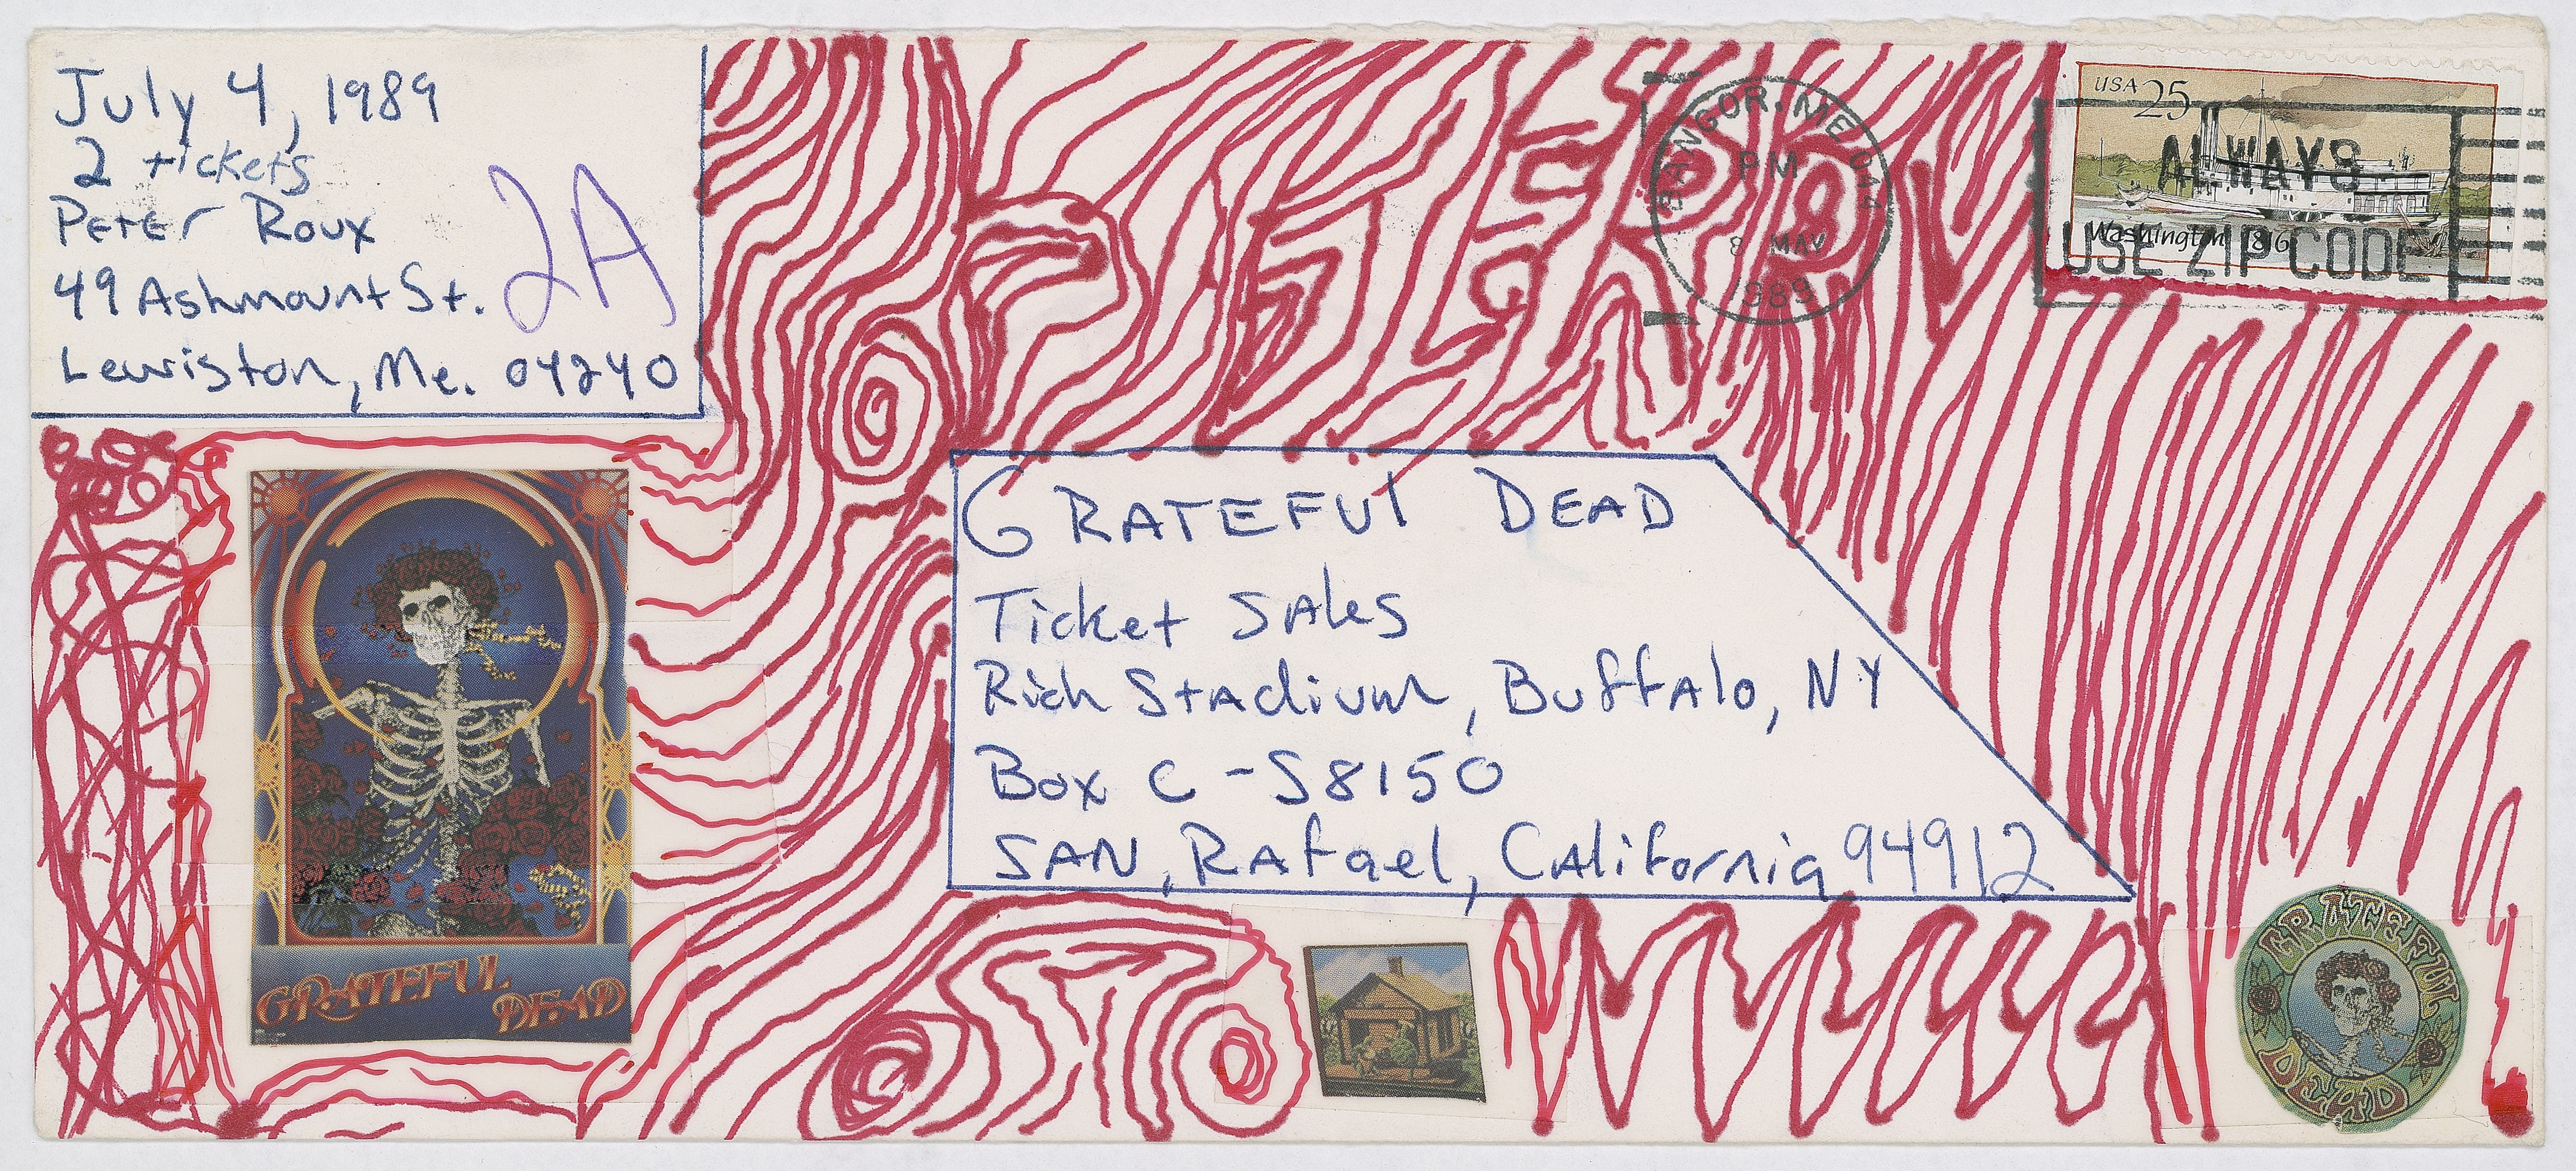 July 4, 1989
2 tickets
Peter Roux
49 Ashmount St.
Lewiston, Me. 04240
2A
BANGOR, ME 044
PM
8 MAY
1989
USA 25
ALWAYS
Washington 1816
USE ZIP CODE
GRATEFUl DEAD
Ticket SAles
Rich Stadium, Buffalo, NY
Box C-S8150
SAN, Rafael, California 94912
GRATEFUL
DEAD
GRATEFUL
DEAD